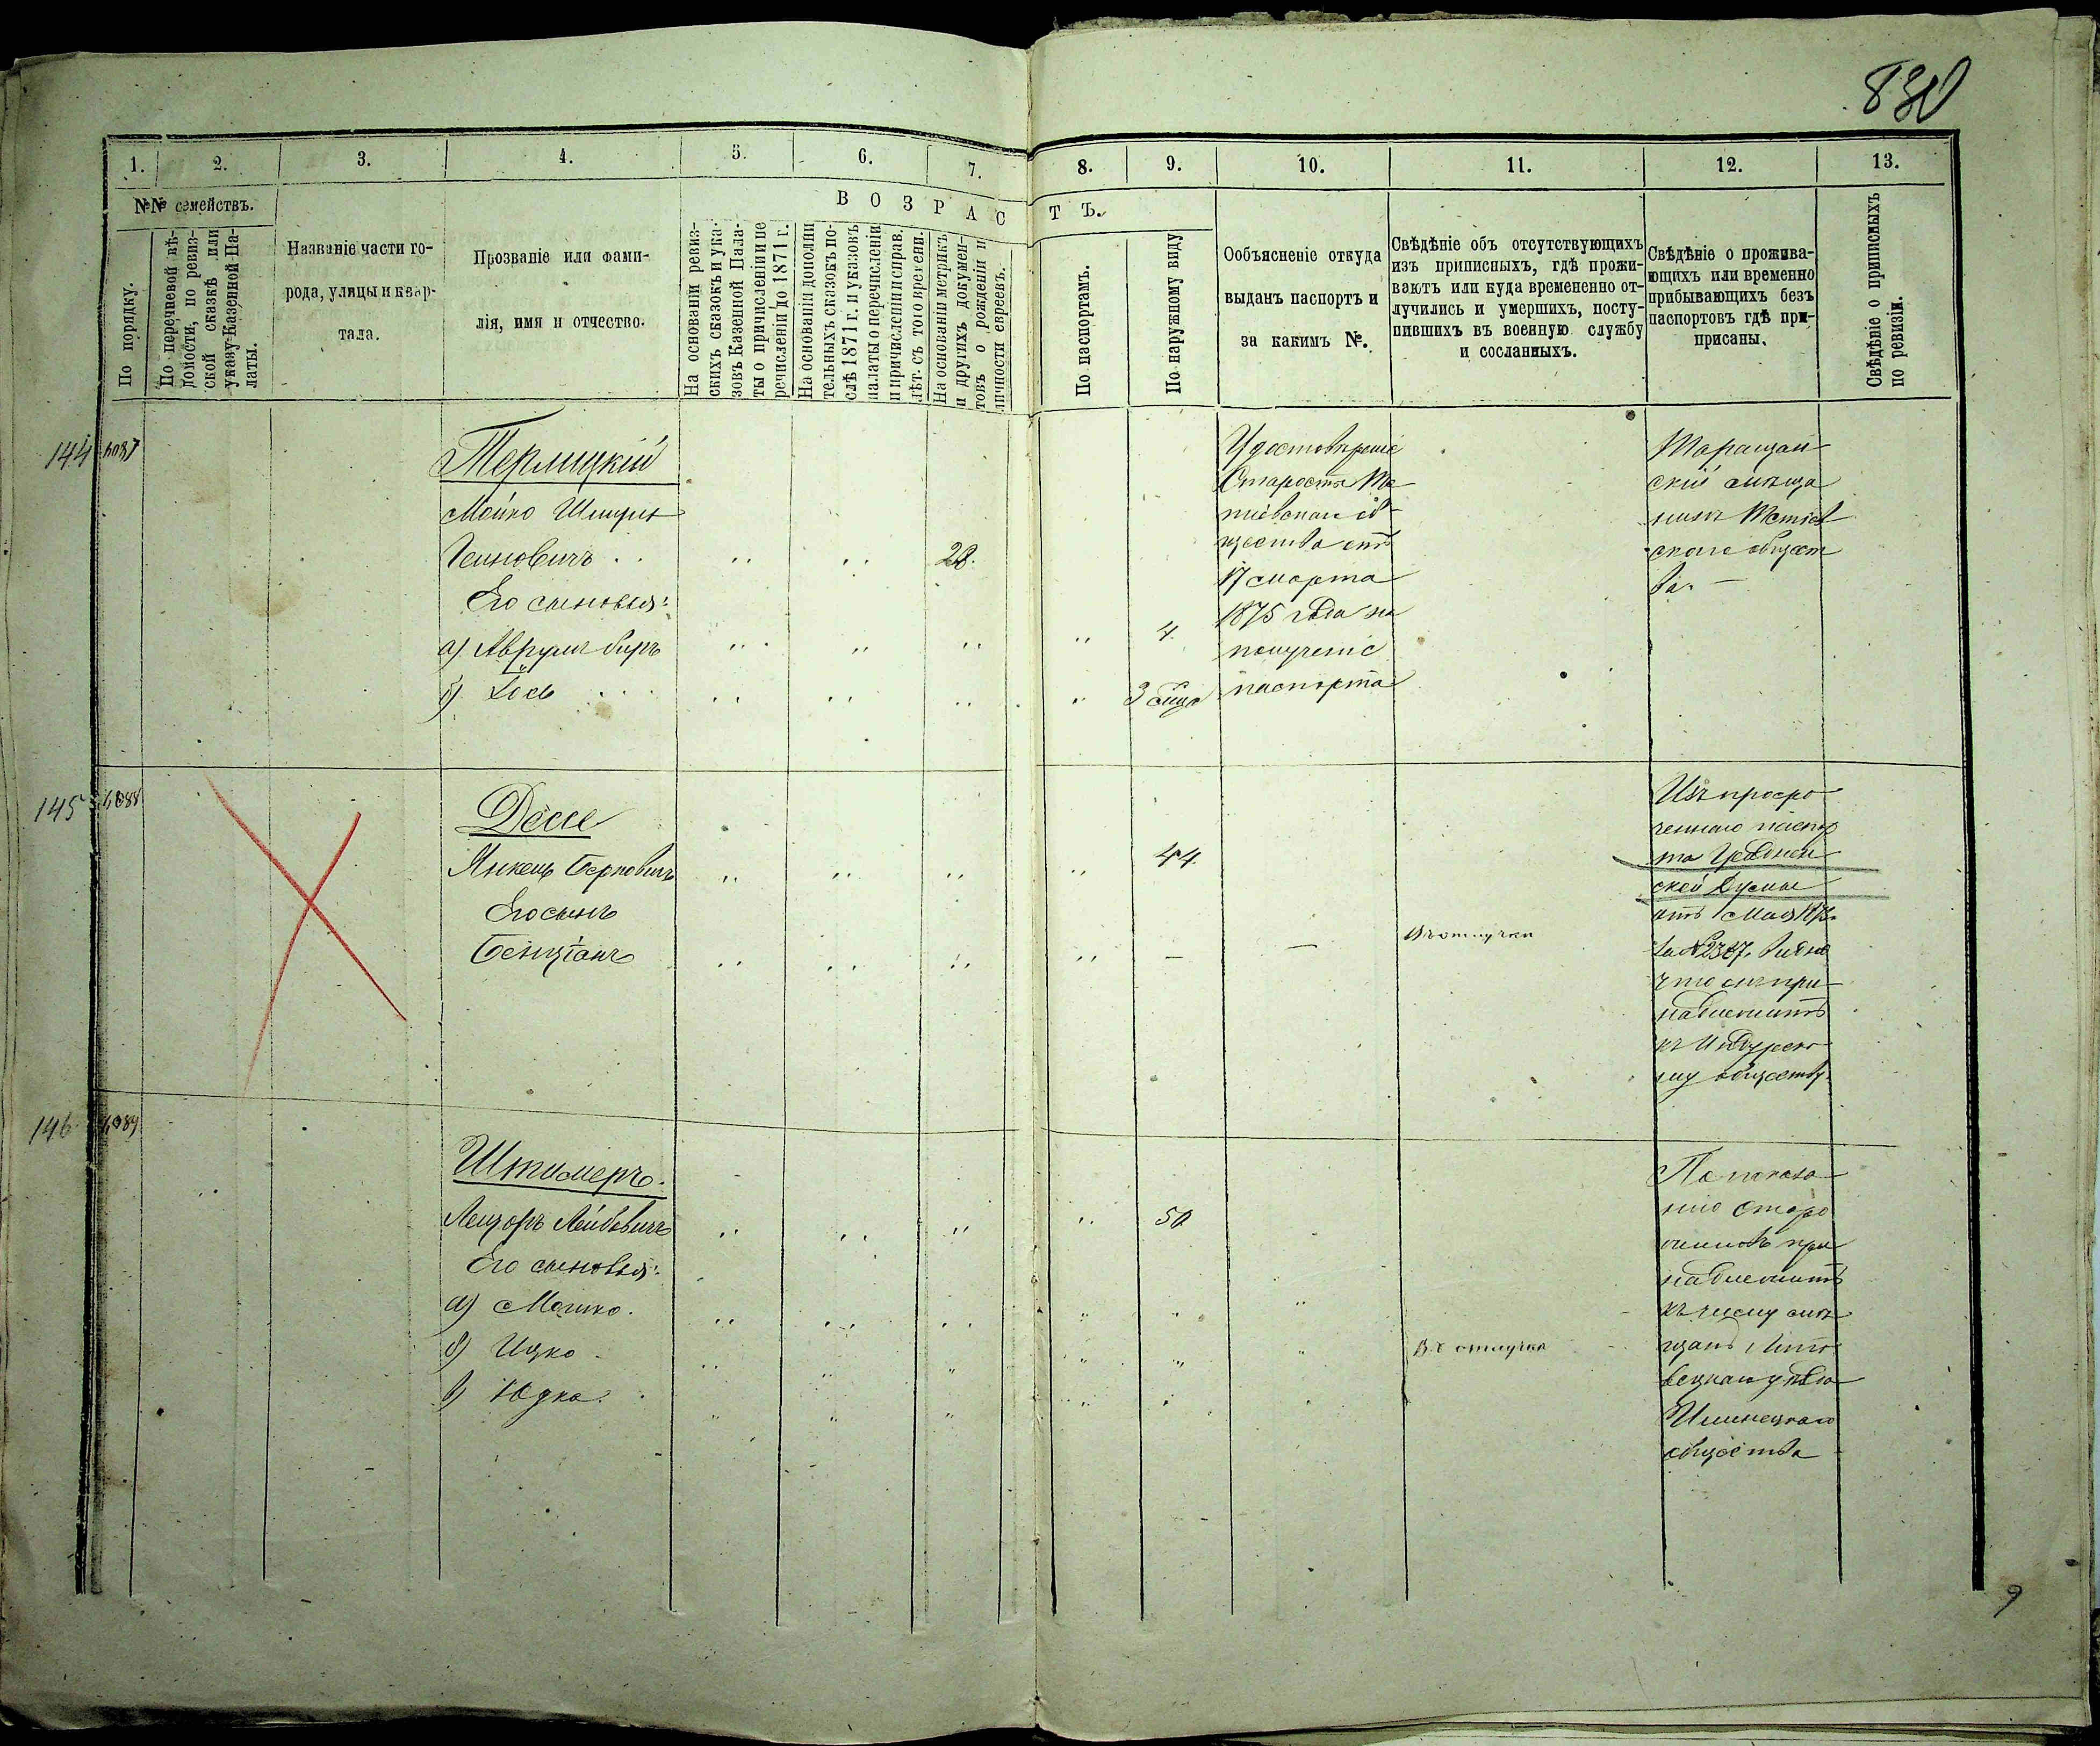 830
1. 2. 3. 4. 5. 6. 7. 8. 9. 10. 11. 12. 13.
№№ семействъ.
В О З Р А С Т Ъ.
По порядку.
По перечневой вѣ-
домости, по ревиз-
ской сказкѣ или
указу Казенной Па-
латы.
Названіе части го-
рода, улицы и квар-
тала.
Прозваніе или фами-
лія, имя и отчество.
На основаніи ревиз-
скихъ сказокъ и ука-
зовъ Казенной Пала-
ты о причисленіи и пе
речисленіи до 1871 г.
На основаніи дополни
тельныхъ сказокъ по-
слѣ 1871 г. и указовъ
палаты о перечисленіи
и причисленіи и справ.
лѣт. съ того времени.
На основаніи метрикъ
и другихъ докумен-
товъ о рожденіи и
личности евреевъ.
По паспортамъ.
По наружному виду
Ообъясненіе откуда
выданъ паспортъ и
за какимъ №.
Свѣдѣніе объ отсутствующихъ
изъ приписныхъ, гдѣ прожи-
ваютъ или куда временено от-
лучились и умершихъ, посту-
пившихъ въ военную службу
и сосланныхъ.
Свѣдѣніе о прожива-
ющихъ или временно
прибывающихъ безъ
паспортовъ гдѣ при-
писаны.
Свѣдѣніе о приписныхъ
по ревизіи.
144
Терлицкій
Мошко
28.
Его сыновья:
а) Аврумъ беръ
4.
б) Іось
3 мѣс.
Удостовѣреніе
Старосты
общества отъ
17 марта
1875 года на
полученіе
паспорта
Таращан
скій мѣща
нинъ
скаго общест
ва.
145
Десе
Янкель Берковичъ
44.
Его сынъ
Бенціонъ
Въ отлучкѣ
Изъ просро
ченнаго паспор
та
ской Думы
отъ 1 Мая
за № видно
что онъ при
надлежитъ
къ
му обществу.
146
Штимеръ.
Лейзоръ Лейбовичъ
50
Его сыновья:
а) Мошко.
б) Ицко
в) Юдка.
Въ отлучкѣ
По показа
нію старо
при
надлежитъ
къ числу мѣ
щанъ Липо
вецкаго уѣзда
Илинецкаго
общества
9